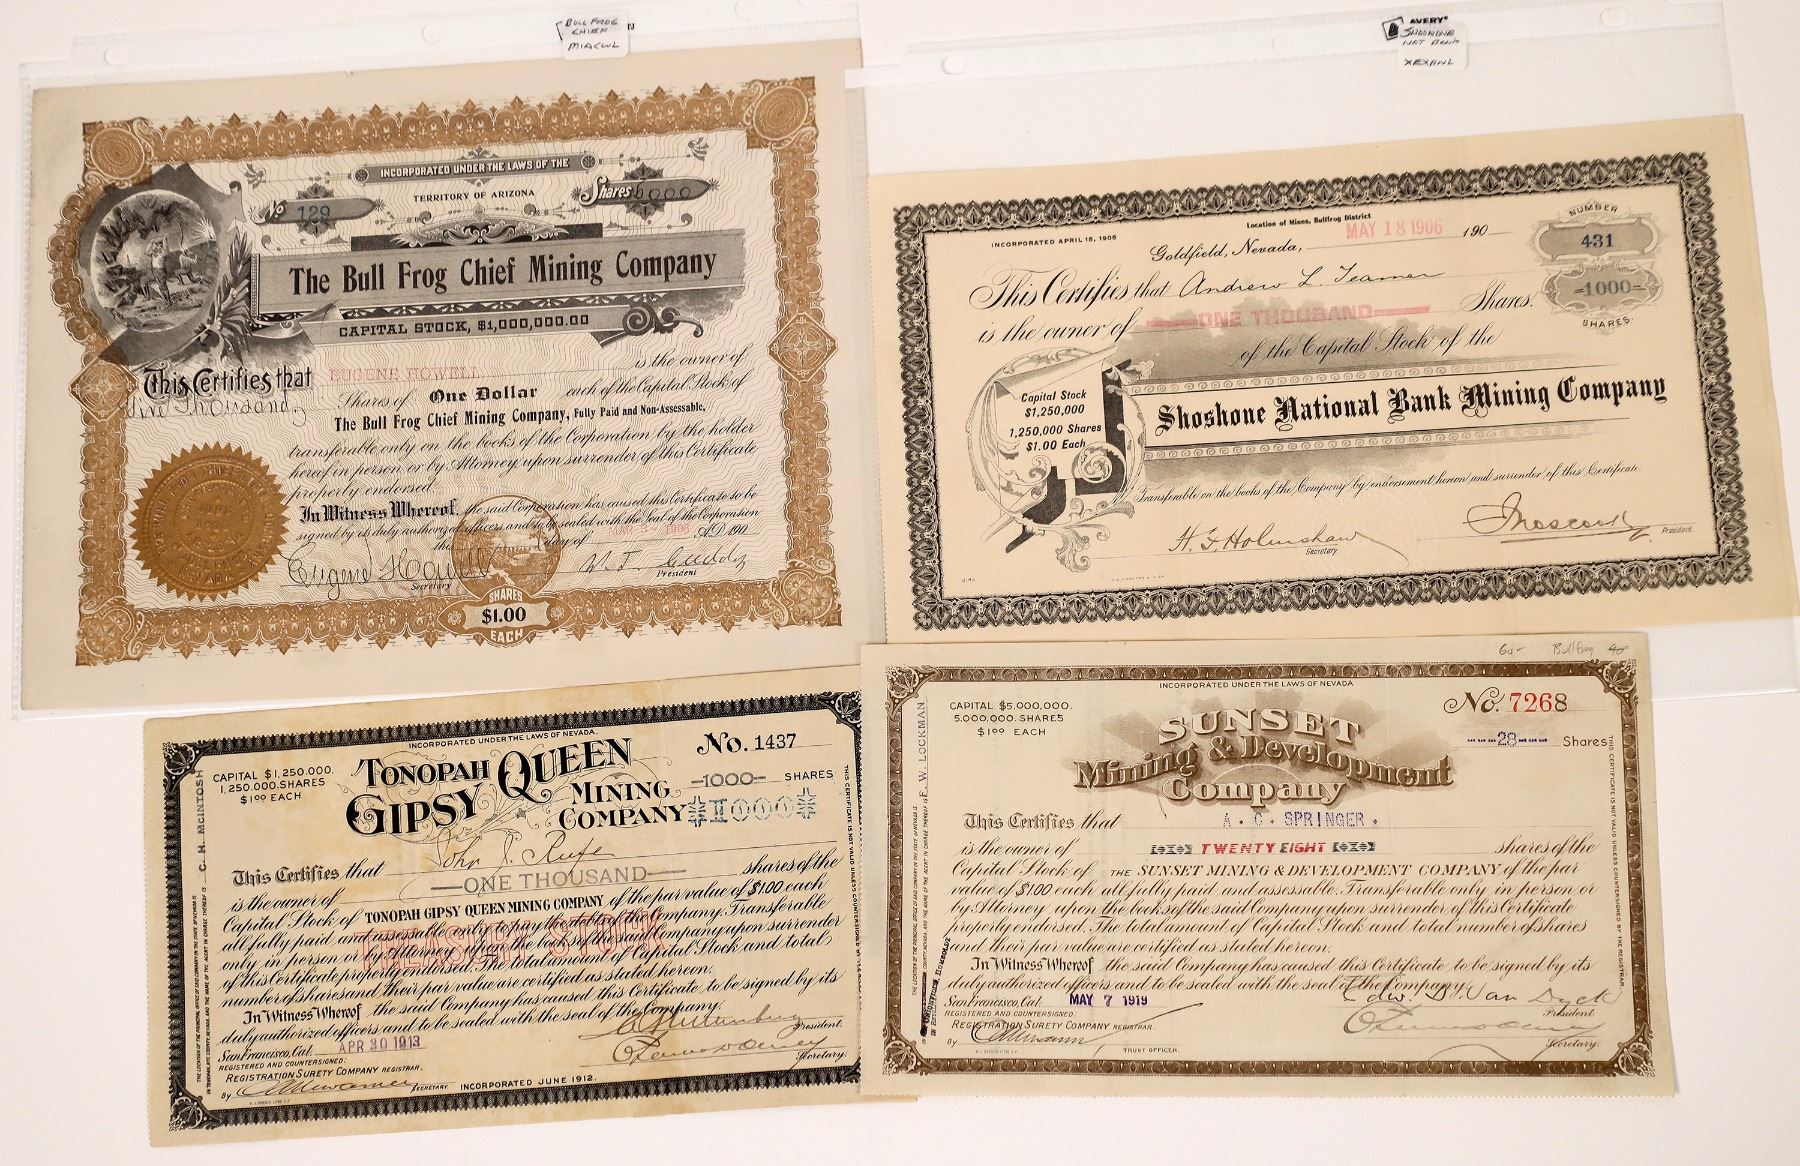 BULL FROG
CHIEF
MIACWL
INCORPORATED UNDER THE LAWS OF THE
TERRITORY OF ARIZONA
No 129
Shares 5000
The Bull Frog Chief Mining Company
CAPITAL STOCK, $1,000,000.00
This Certifies that EUGENE HOWELL is the owner of
Five Thousand Shares of One Dollar each of the Capital Stock of
The Bull Frog Chief Mining Company, Fully Paid and Non-Assessable,
transferable only on the books of the Corporation by the holder
hereof in person or by Attorney upon surrender of this Certificate
properly endorsed.
In Witness Whereof, the said Corporation has caused this Certificate to be
signed by its duly authorized officers and to be sealed with the Seal of the Corporation
this day of 1906 A.D. 190
Eugene Howell
Secretary
President
SHARES
$1.00
EACH
AVERY
SHOSHONE
NAT BANK
XEXRWL
Location of Mines, Bullfrog District
INCORPORATED APRIL 15, 1905
Goldfield, Nevada, MAY 18 1906 190
NUMBER
431
-1000-
SHARES.
This Certifies that Andrew L. Teamer
is the owner of ONE THOUSAND Shares.
of the Capital Stock of the
Shoshone National Bank Mining Company
Capital Stock
$1,250,000
1,250,000 Shares
$1.00 Each
Transferable on the books of the Company by endorsement hereon and surrender of this Certificate
H. F. Holmshaw
Secretary
President.
2142
INCORPORATED UNDER THE LAWS OF NEVADA.
CAPITAL $1,250,000.
1,250,000. SHARES
$1.00 EACH
TONOPAH
GIPSY QUEEN
MINING
COMPANY
No. 1437
-1000- SHARES
1000
This Certifies that John J. Rufer
is the owner of ONE THOUSAND shares of the
Capital Stock of TONOPAH GIPSY QUEEN MINING COMPANY of the par value of $1.00 each
all fully paid and assessable only to pay the debts of the Company. Transferable
only in person or by Attorney upon the books of the said Company upon surrender
of this Certificate properly endorsed. The total amount of Capital Stock and total
number of shares and their par value are certified as stated hereon.
TREASURY STOCK
In Witness Whereof the said Company has caused this Certificate to be signed by its
duly authorized officers and to be sealed with the seal of the Company.
San Francisco, Cal. APR 30 1913
President.
REGISTERED AND COUNTERSIGNED:
REGISTRATION SURETY COMPANY REGISTRAR.
Secretary.
By SECRETARY
INCORPORATED JUNE 1912.
C. H. McINTOSH
THIS CERTIFICATE IS NOT VALID UNLESS COUNTERSIGNED BY THE REGISTRAR.
60- Bullfrog 40
INCORPORATED UNDER THE LAWS OF NEVADA
CAPITAL $5,000,000.
5,000,000. SHARES
$1.00 EACH
SUNSET
Mining & Development
Company
No. 7268
28 Shares
This Certifies that A. C. SPRINGER.
is the owner of TWENTY EIGHT shares of the
Capital Stock of THE SUNSET MINING & DEVELOPMENT COMPANY of the par
value of $1.00 each all fully paid and assessable. Transferable only in person or
by Attorney upon the books of the said Company upon surrender of this Certificate
properly endorsed. The total amount of Capital Stock and total number of shares
and their par value are certified as stated hereon.
In Witness Whereof the said Company has caused this Certificate to be signed by its
duly authorized officers and to be sealed with the seal of the Company.
San Francisco, Cal. MAY 7 1919
Edw. D. Van Dyck
President.
REGISTERED AND COUNTERSIGNED:
REGISTRATION SURETY COMPANY REGISTRAR.
Secretary.
By TRUST OFFICER.
E. W. LOCKMAN
THIS CERTIFICATE IS NOT VALID UNLESS COUNTERSIGNED BY THE REGISTRAR.